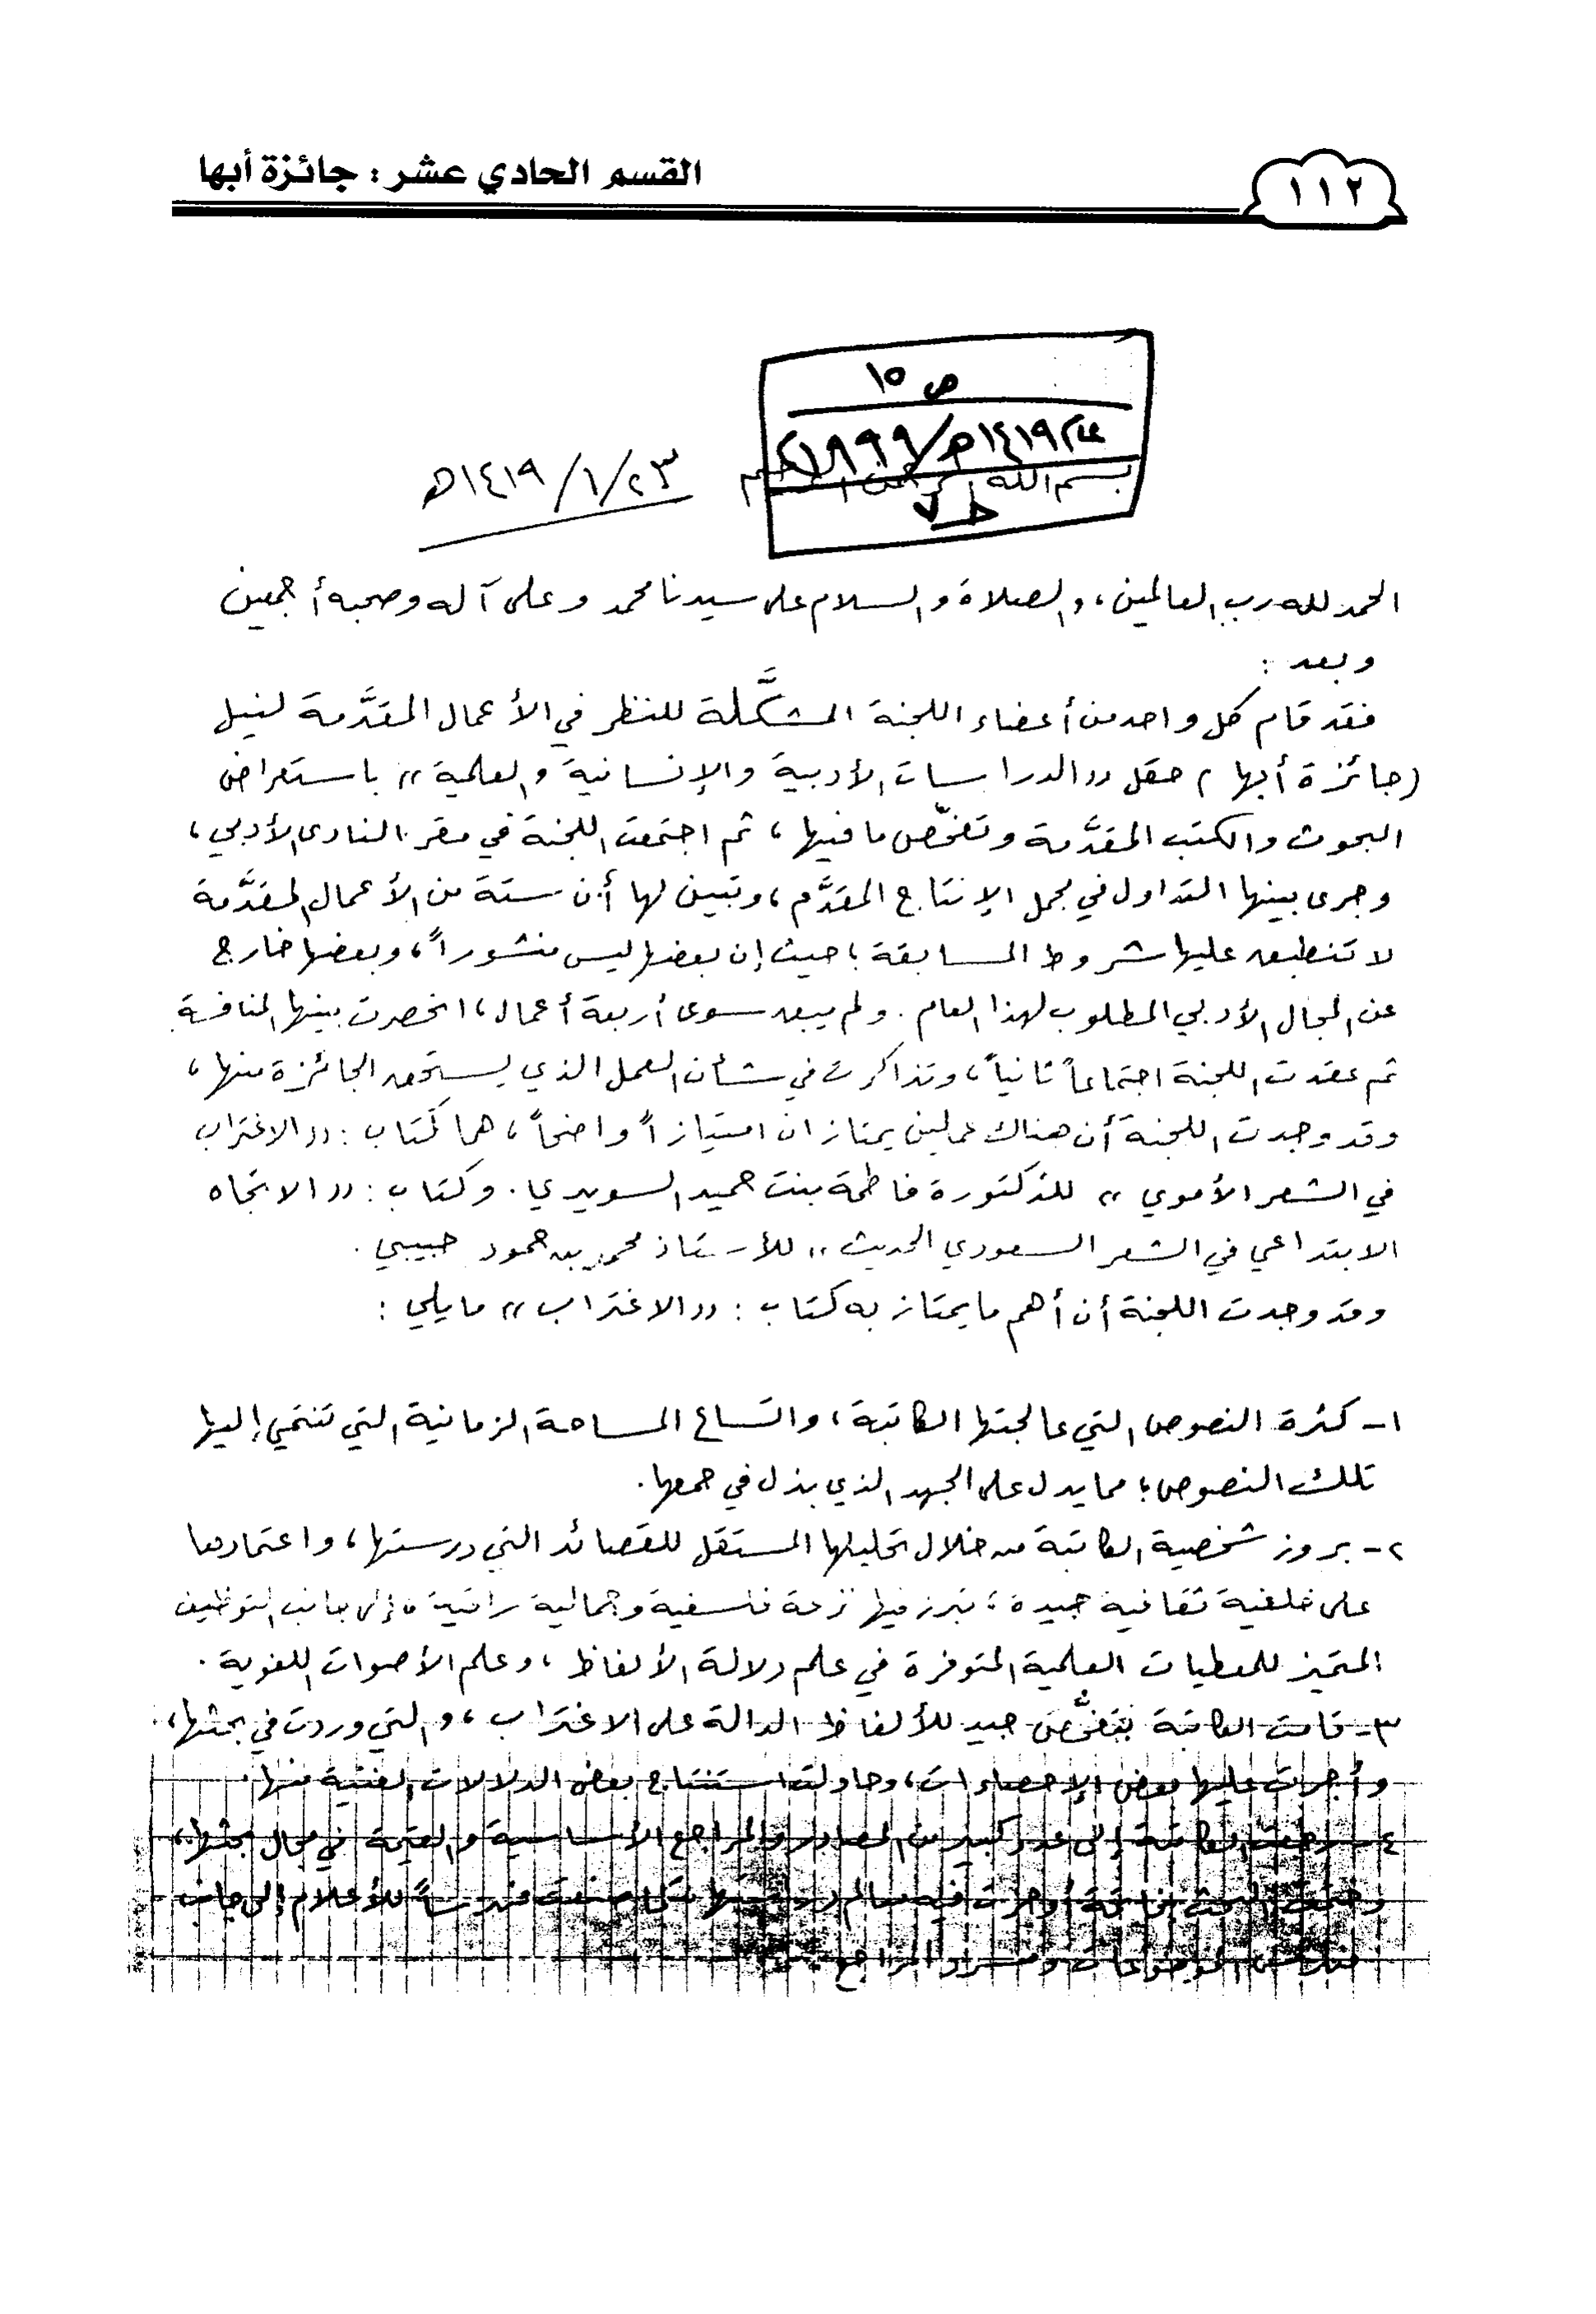 ١١٢
القسم الحادي عشر : جائزة أبها
ص ١٥
١٤١٩هـ/١٨٩٩
بسم الله الرحمن الرحيم
١٤١٩/١/٢٣هـ
الحمد لله رب العالمين، والصلاة والسلام على سيدنا محمد وعلى آله وصحبه أجمعين
وبعد :
فقد قام كل واحد من أعضاء اللجنة المشكَّلة للنظر في الأعمال المقدَّمة لنيل
(جائزة أبها) حقل «الدراسات الأدبية والإنسانية والعلمية» باستعراض
البحوث والكتب المقدَّمة وتفحّص ما فيها، ثم اجتمعت اللجنة في مقر النادي الأدبي،
وجرى بينها التداول في مجمل الإنتاج المقدَّم، وتبين لها أن ستة من الأعمال المقدَّمة
لا تنطبق عليها شروط المسابقة؛ حيث إن بعضها ليس منشوراً، وبعضها خارج
عن المجال الأدبي المطلوب لهذا العام. ولم يبق سوى أربعة أعمال، انحصرت بينها المنافسة.
ثم عقدت اللجنة اجتماعاً ثانياً، وتذاكرت في شأن العمل الذي يستحق الجائزة منها،
وقد وجدت اللجنة أن هناك عملين يمتازان امتيازاً واضحاً، هما كتاب: «الاغتراب
في الشعر الأموي» للدكتورة فاطمة بنت حميد السويدي. وكتاب: «الاتجاه
الابتداعي في الشعر السعودي الحديث» للأستاذ محمد بن حمود حبيبي.
وقد وجدت اللجنة أن أهم ما يمتاز به كتاب: «الاغتراب» ما يلي :
١- كثرة النصوص التي عالجتها الكاتبة، واتساع المساحة الزمانية التي تنتمي إليها
تلك النصوص؛ مما يدل على الجهد الذي بذل في جمعها.
٢- بروز شخصية الكاتبة من خلال تحليلها المستقل للقصائد التي درستها، واعتمادها
على خلفية ثقافية جيدة؛ تبرز فيها نزعة فلسفية وجمالية راقية، إلى جانب التوظيف
المتميز للمعطيات العلمية المتوفرة في علم دلالة الألفاظ، وعلم الأصوات اللغوية.
٣- قامت الكاتبة بتفحُّص جيد للألفاظ الدالة على الاغتراب، والتي وردت في بحثها،
وأجرت عليها بعض الإحصاءات، وحاولت استنتاج بعض الدلالات الفنية منها.
٤- رجعت الكاتبة إلى عدد كبير من المصادر والمراجع الأساسية والقيمة في مجال بحثها،
وختمت البحث بخاتمة أوجزت فيه معالم دراستها كما صنعت فهرساً للأعلام إلى جانب
فهرس الموضوعات ومسرد المراجع